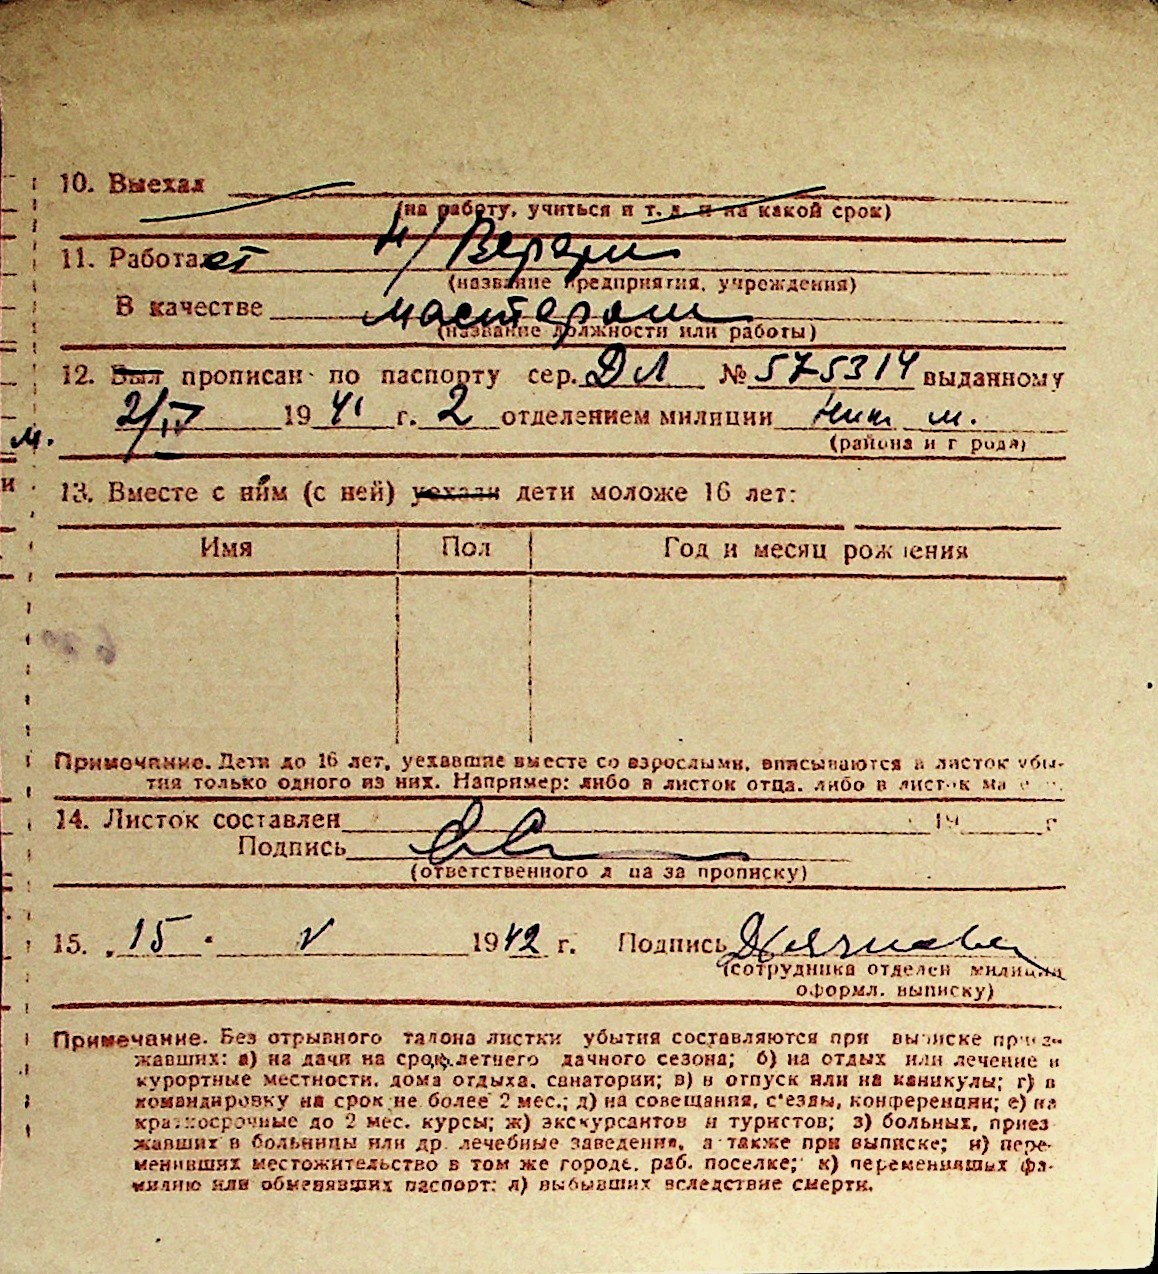 10. Выехал
(на работу, учиться и т. д. и на какой срок)
11. Работает Н/
(название предприятия, учреждения)
В качестве мастером
(название должности или работы)
12. Был прописан по паспорту сер. ДЛ № 575314 выданному
2/IV 1941 г. 2 отделением милиции м.
(района и города)
м.
и
13. Вместе с ним (с ней) уехали дети моложе 16 лет:
Имя Пол Год и месяц рождения
Примечание. Дети до 16 лет, уехавшие вместе со взрослыми, вписываются в листок убы-
тия только одного из них. Например: либо в листок отца, либо в листок
14. Листок составлен 19 г
Подпись
(ответственного лица за прописку)
15. 15 V 1942 г. Подпись
(сотрудника отделен милиции
оформл. выписку)
Примечание. Без отрывного талона листки убытия составляются при выписке приез-
жавших: а) на дачи на срок летнего дачного сезона; б) на отдых или лечение в
курортные местности, дома отдыха, санатории; в) в отпуск или на каникулы; г) в
командировку на срок не более 2 мес.; д) на совещания, с'езды, конференции; е) на
краткосрочные до 2 мес. курсы; ж) экскурсантов и туристов; з) больных, приез
жавших в больницы или др. лечебные заведения, а также при выписке; и) пере-
менивших местожительство в том же городе, раб. поселке; к) переменивших фа-
милию или обменявших паспорт; л) выбывших вследствие смерти.